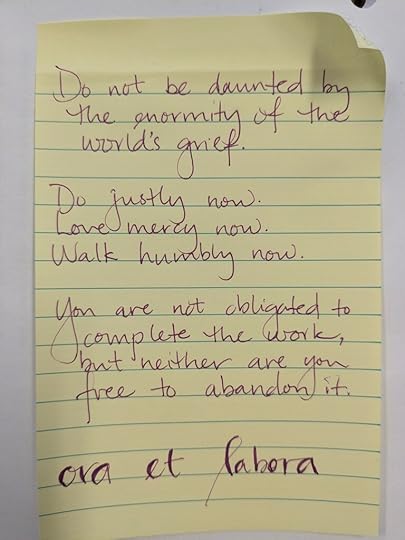 Do not be daunted by
the enormity of the
world's grief.
Do justly now.
Love mercy now.
Walk humbly now.
You are not obligated to
complete the work,
but neither are you
free to abandon it.
ora et labora